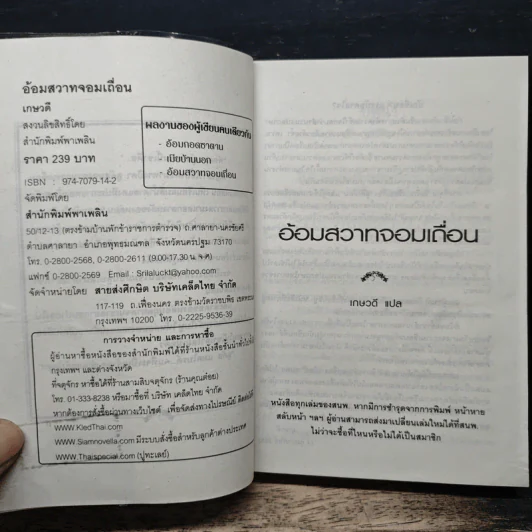 อ้อมสวาทจอมเถื่อน
เกษวดี
สงวนลิขสิทธิ์โดย
สำนักพิมพ์พาเพลิน
ราคา 239 บาท
ISBN : 974-7079-14-2
จัดพิมพ์โดย
สำนักพิมพ์พาเพลิน
50/12-13 (ตรงข้ามบ้านพักข้าราชการตำรวจ) ถ.ศาลายา-นครชัยศรี
ตำบลศาลายา อำเภอพุทธมณฑล จังหวัดนครปฐม 73170
โทร. 0-2800-2568, 0-2800-2611 (9.00-17.30 น. จ-ศ)
แฟกซ์ 0-2800-2569 Email : Srilaluckt@yahoo.com
จัดจำหน่ายโดย สายส่งศึกษิต บริษัทเคล็ดไทย จำกัด
117-119 ถ.เฟื่องนคร ตรงข้ามวัดราชบพิธ
กรุงเทพฯ 10200 โทร. 0-2225-9536-39
ผลงานของผู้เขียนคนเดียวกัน
- อ้อมกอดซาตาน
- เมียบ้านนอก
- อ้อมสวาทจอมเถื่อน
การวางจำหน่าย และการหาซื้อ
ผู้อ่านหาซื้อหนังสือของสำนักพิมพ์ได้ที่ร้านหนังสือชั้นนำทั่วไป
กรุงเทพฯ และต่างจังหวัด
ที่จตุจักร หาซื้อได้ที่ร้านสามสิบจตุจักร (ร้านคุณต่อย)
โทร. 01-333-8238 หรือมาซื้อที่ บริษัท เคล็ดไทย จำกัด
หากต้องการสั่งซื้อผ่านทางเว็บไซต์ เพื่อจัดส่งทางไปรษณีย์
www.KledThai.com
www.Siamnovella.com มีระบบสั่งซื้อสำหรับลูกค้าต่างประเทศ
www.Thaispecial.com (ปูทะเลย์)
อ้อมสวาทจอมเถื่อน
เกษวดี แปล
หนังสือทุกเล่มของสนพ. หากมีการชำรุดจากการพิมพ์ หน้าหาย
สลับหน้า ฯลฯ ผู้อ่านสามารถส่งมาเปลี่ยนเล่มใหม่ได้ที่สนพ.
ไม่ว่าจะซื้อที่ไหนหรือไม่ได้เป็นสมาชิก